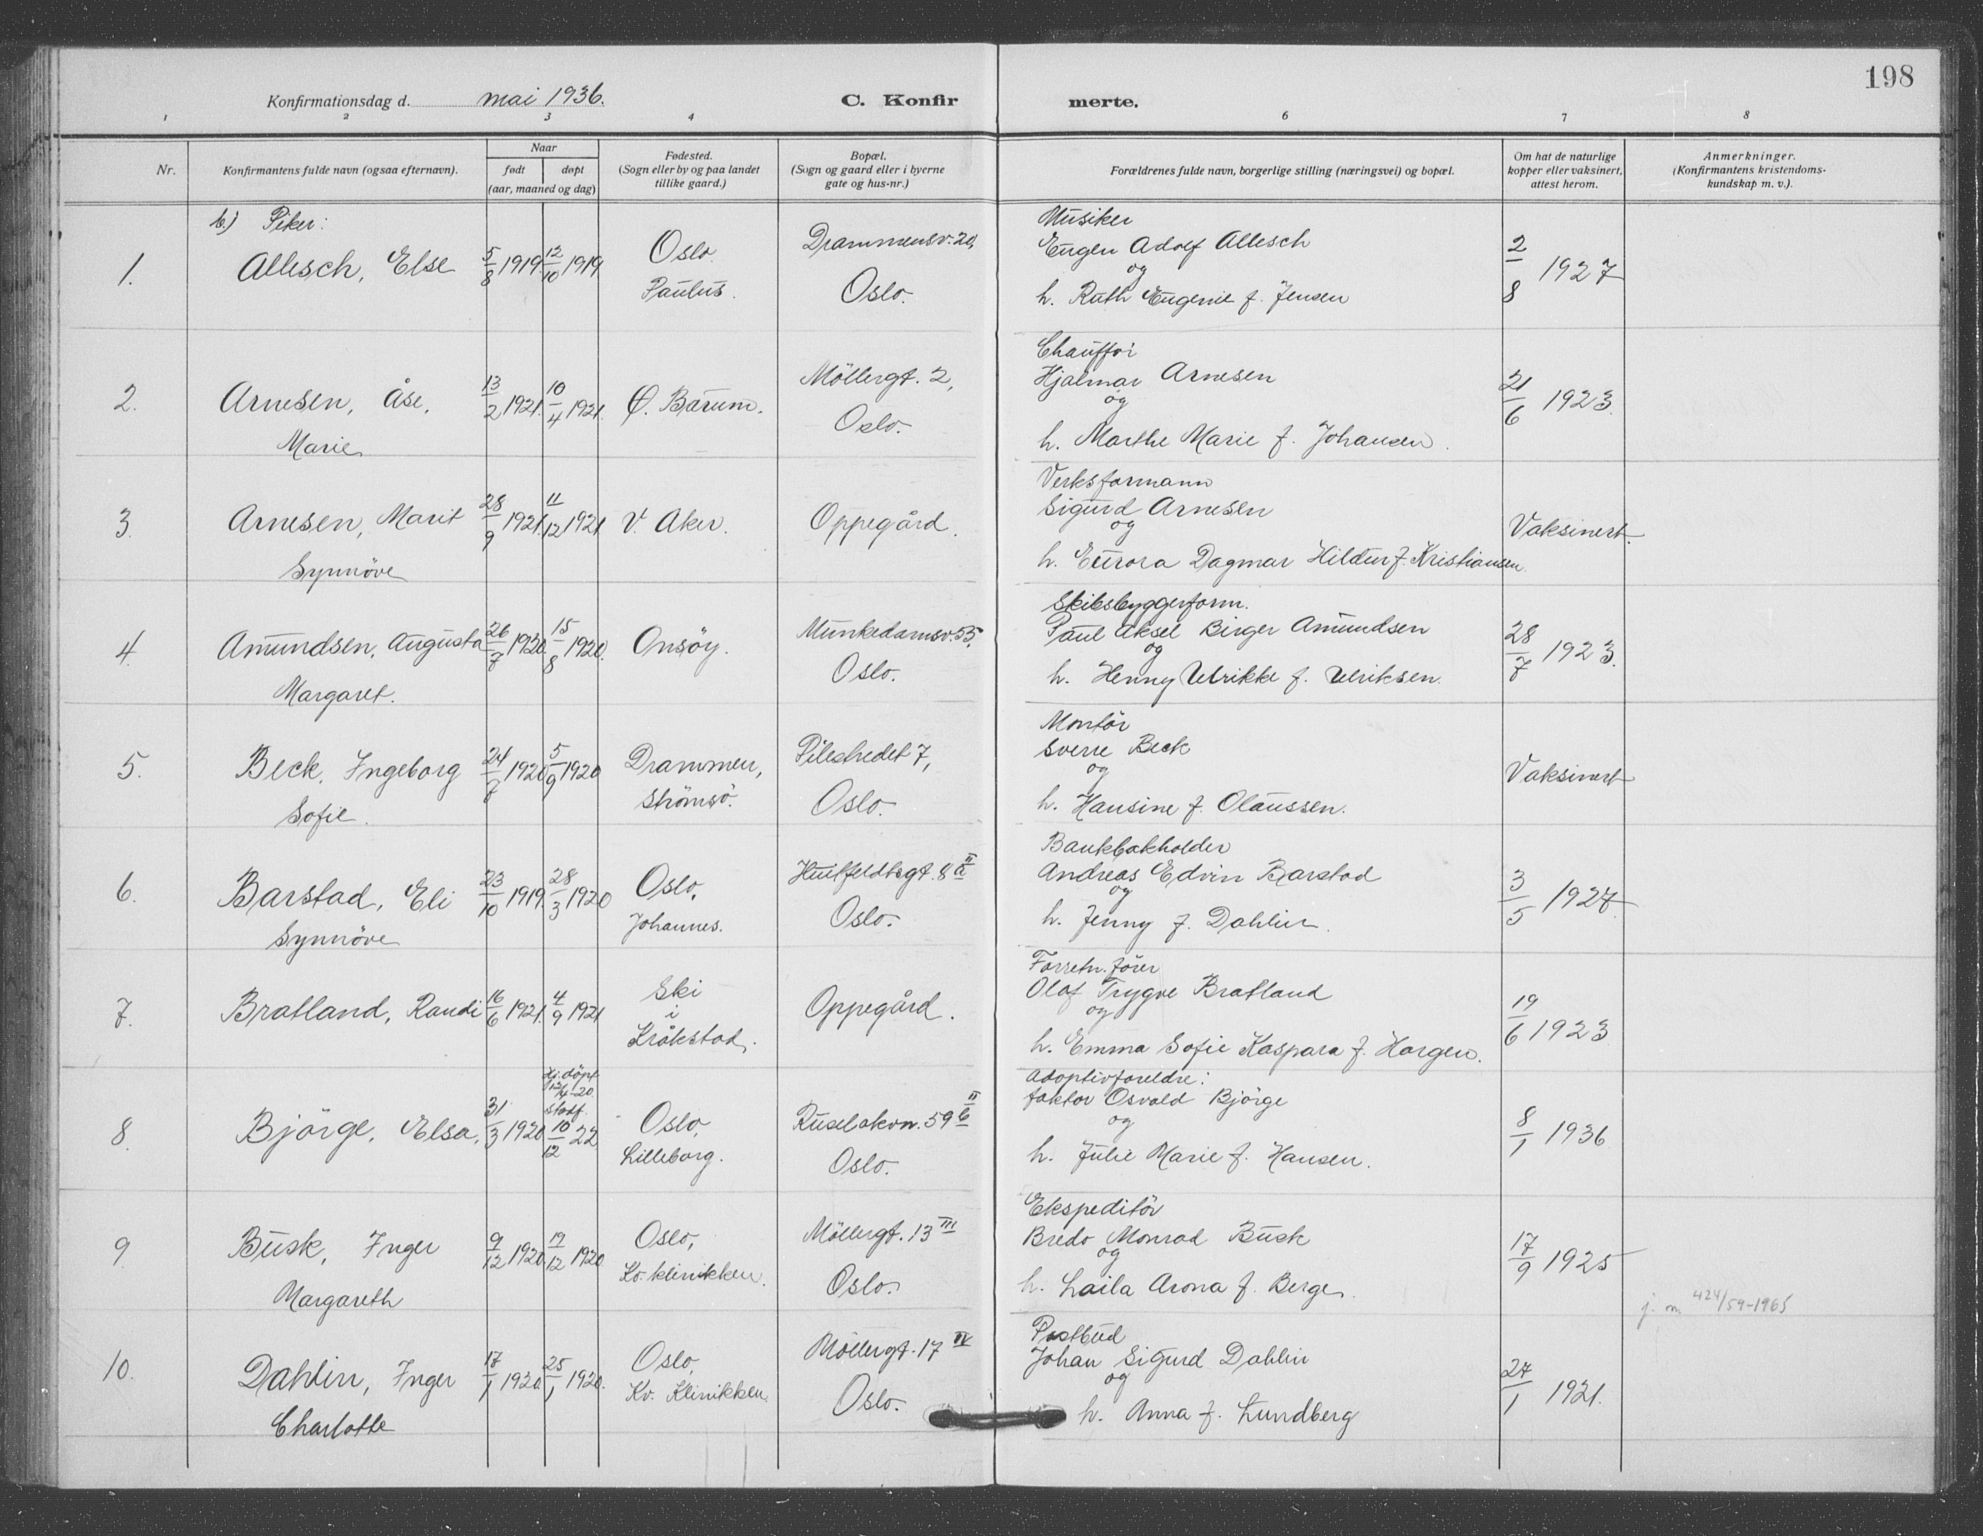 198
Konfirmationsdag d. mai 1936. C. Konfir merte.
1 2 3 4 6 7 8
Nr.
Konfirmantens fulde navn (ogsaa efternavn).
Naar
født døpt
(aar, maaned og dag)
Fødested.
(Sogn eller by og paa landet
tillike gaard.)
Bopæl.
(Sogn og gaard eller i byerne
gate og hus-nr.)
Forældrenes fulde navn, borgerlige stilling (næringsvei) og bopæl.
Om hat de naturlige
kopper eller vaksinert,
attest herom.
Anmerkninger.
(Konfirmantens kristendoms-
kundskap m. v.).
b.) Piker:
1. Allesch, Else 5/8 1919. 12/10 1919.
Oslo.
Paulus.
Drammensv. 20,
Oslo.
Musiker
Eugen Adolf Allesch
og
h. Ruth Eugenie f. Jensen
2/8 1927
2. Arnesen, Åse,
Marie
13/2 1921. 10/4 1921.
Ø. Bärum.
Möllergt. 2,
Oslo.
Chauffør
Hjalmar Arnesen
og
h. Marthe Marie f. Johansen.
21/6 1923.
3. Arnesen, Marit
Synnöve
28/9 1921. 11/12 1921
V. Aker.
Oppegård.
Verksformann
Sigurd Arnesen
og
h. Eurora Dagmar Hildur f. Kristiansen
Vaksinert.
4. Amundsen, Augusta
Margaret.
26/7 1920. 15/8 1920.
Onsöy.
Munkedamsv. 55,
Oslo.
Skibsbyggerform.
Paul Aksel Birger Amundsen
og
h. Henny Ulrikke f. Ulriksen.
28/7 1923.
5. Beck, Ingeborg
Sofie.
1920 5/9 1920
Drammen,
Strömsö.
Pilestredet 7,
Oslo.
Montör
Sverre Beck
og
h. Hansine f. Olaussen.
Vaksinert
6. Barstad, Eli
Synnöve
23/10 1919. 28/3 1920
Oslo,
Johannes.
Huitfeldtsgt. 8 a II
Oslo.
Bankbokholder
Andreas Edvin Barstad
og
h. Jenny f. Dahlin.
3/5 1927
7. Bratland, Randi
16/6 1921. 4/9 1921
Ski
i
Kråkstad.
Oppegård.
Forretn. förer
Olaf Trygve Bratland
og
h. Emma Sofie Kaspara f. Horgen.
19/6 1923
8. Björge, Elsa,
31/3 1920
hj. döpt
stadf.
10/12 22
Oslo,
Lilleborg.
Ruselökvn. 59 b II
Oslo.
Adoptivforeldre:
faktor Osvald Björge
og
h. Julie Marie f. Hansen.
8/1 1936
9. Busk, Inger
Margareth
9/12 1920. 19/12 1920
Oslo,
Kv. klinikken.
Möllergt. 13 III
Oslo.
Ekspeditör
Bredo Monrad Busk
og
h. Laila Arona f. Berge.
17/9 1925
j. n. 424/59-1965
10. Dahlin, Inger
Charlotte
17/1 1920. 25/1 1920.
Oslo,
Kv. Klinikken.
Möllergt. 17 IV
Oslo.
Postbud
Johan Sigurd Dahlin
og
h. Anna f. Lundberg
27/1 1921.